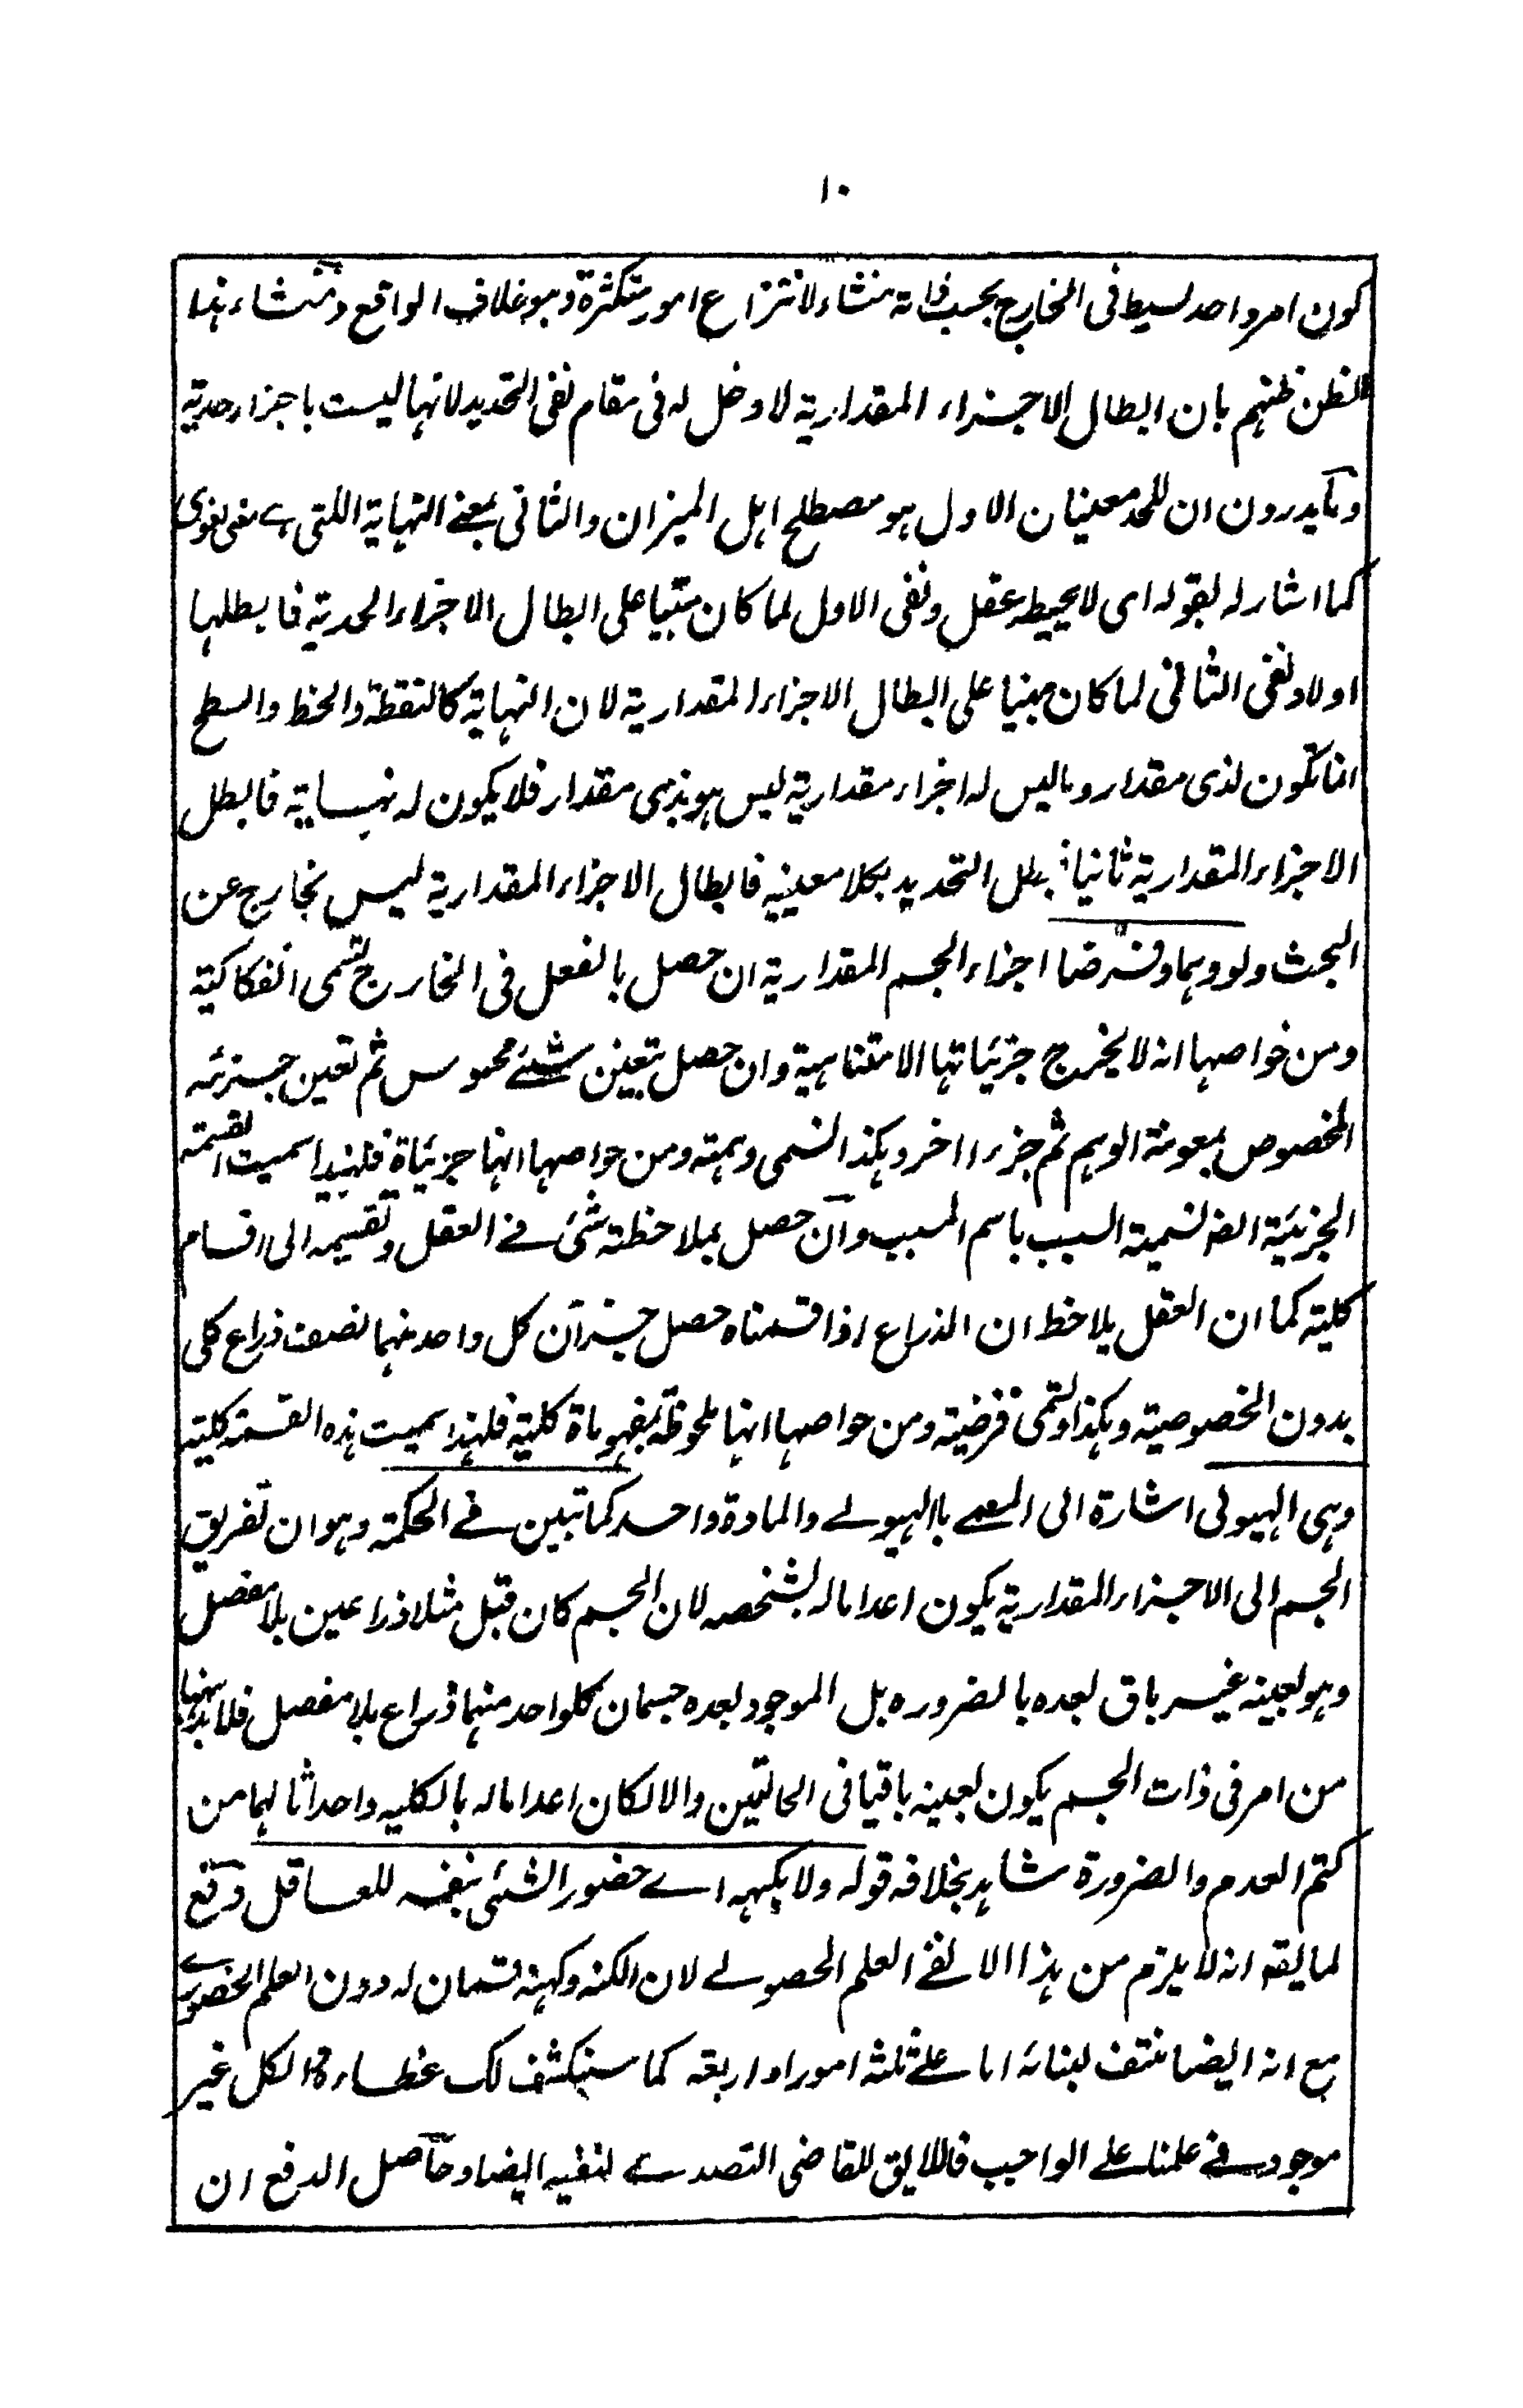 ١٠
كون امر واحد بسيط فى الخارج بحسب ذاته منشاء لانتزاع امور متكثرة وهو خلاف الواقع ومنشاء هذا
الظن ظنهم بان ابطال الاجزاء المقدارية لا دخل له فى مقام نفى التحديد لانها ليست باجزاء حدية
وما يدرون ان للحد معنيان الاول هو مصطلح اهل الميزان والثانى بمعنے النهاية اللتى هے معنى لغوى
كما اشار له بقوله اى لا يحيطه عقل ونفى الاول لما كان مبنيا على ابطال الاجزاء الحدية فابطلها
اولا ونفى الثانى لما كان مبنيا على ابطال الاجزاء المقدارية لان النهاية كالنقطة والخط والسطح
انما تكون لذى مقدار وما ليس له اجزاء مقدارية ليس هو بذى مقدار فلا يكون له نهاية فابطل
الاجزاء المقدارية ثانيا فبطل التحديد بكلا معنييه فابطال الاجزاء المقدارية ليس بخارج عن
البحث ولو وهما وفرضا اجزاء الجسم المقدارية ان حصل بالفعل فى الخارج تسمى انفكاكية
ومن خواصها انه لا يخرج جزئياتها الا متناهية وان حصل بتعين شئے محسوس ثم تعين جزئه
المخصوص بمعونة الوهم ثم جزءا اخر وهكذا تسمى وهمية ومن خواصها انها جزئياة فلهذا سميت القسمة
الجزئية ايضا تسمية السبب باسم المسبب وان حصل بملاحظة شئ فے العقل وتقسيمه الى اقسام
كلية كما ان العقل يلاحظ ان الذراع اذا قسمناه حصل جزآن كل واحد منهما نصف ذراع كلى
بدون الخصوصية وهكذا وتسمى فرضية ومن خواصها انها ملحوظة بمفهوماة كلية فلهذا سميت هذه القسمة كلية
وهى الهيولى اشارة الى المسمے بالهيولے والمادة واحد كما تبين فے الحكمة وهو ان تفريق
الجسم الى الاجزاء المقدارية يكون اعداما له بشخصه لان الجسم كان قبل مثلا ذراعين بلا مفصل
وهو بعينه غير باق بعده بالضروره بل الموجود بعده جسمان كلواحد منهما ذراع بلا مفصل فلا بد
من امر فى ذات الجسم يكون بعينه باقيا فى الحالتين والا لكان اعداما له بالكليه واحداثا لهما من
كتم العدم والضرورة شاهد بخلافه قوله ولا بكنهه اے حضور الشئى بنفسه للعاقل دفع
لما يقه انه لا يلزم من هذا الا نفے العلم الحصولے لان الكنه وكنهه قسمان له دون العلم الحضورے
مع انه ايضا منتف لبنائه اما علے ثلثه امور او اربعه كما سنكشف لك غطاءه والكل غير
موجود فے علمنا علے الواجب فاللايق للقاضى التصدے لنفيه ايضا وحاصل الدفع ان